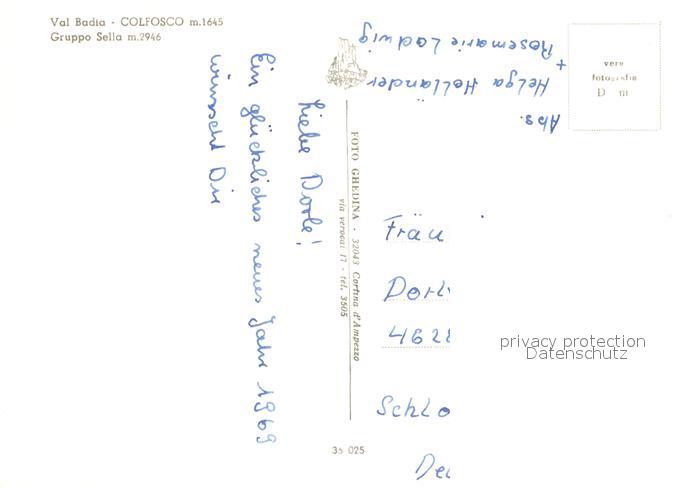 Val Badia - COLFOSCO m.1645
Gruppo Sella m.2946
Liebe Dorle!
Ein glückliches neues Jahr 1969
wünscht Dir
FOTO GHEDINA - 32043 Cortina d'Ampezzo
via verocai 17 - tel. 3505
35 025
Abs.
Helga Holländer
+
Rosemarie Ladwig
vera
fotografia
Fräu
Dorl
462
Schlo
De
privacy protection
Datenschutz